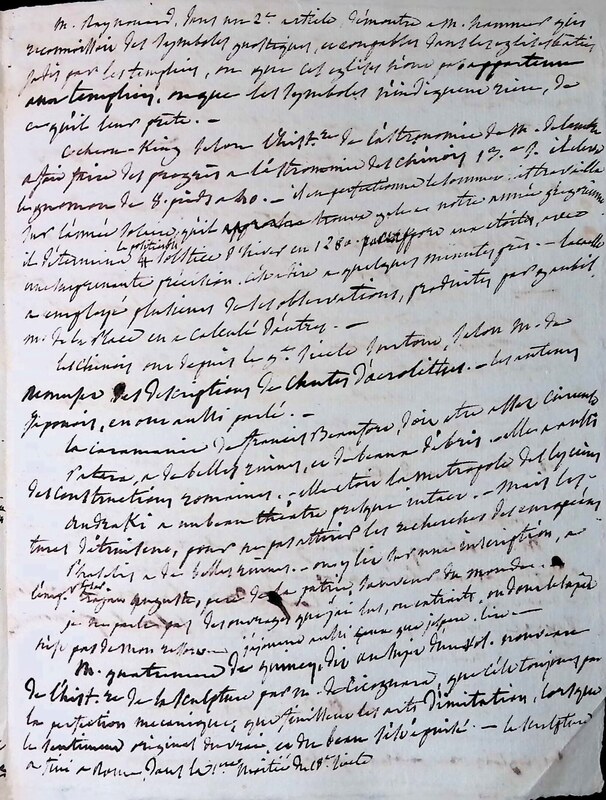 M. Raynouard, dans un 2e. article, démontre a M. hammer qu'en
reconnoissoit des symboles gnostiques, et coupables dans les eglises baties
jadis par les templiers, ou que ces eglises n'ont pas appartenu
aux templiers, ou que les symboles n'indiquent rien, de
ce qu'il leur prete. —
Cocheou-King selon l'hist.re de l'astronomie de M. de lambre
a fait faire des progrès a l'astronomie des chinois 13e. S. il eleva
le gnomon de 8. pieds a 40. — il en perfectionne le sommet, et travailla
sur l'année solaire, qu'il trouva egale a notre année grégorienne
il détermine la position du solstice d'hiver en 1280. par rapport aux etoiles, avec
une surprenante precision, c'est a dire a quelques minutes près. — lacaille
a employé plusieurs de ses observations, produites par gaubil
m. de la place en a calculé d'autres. —
les chinois ont depuis le 7e. siecle surtout, selon M. de
remusat des descriptions de chutes d'aerolithes. — les auteurs
japonois, en ont aussi parlé. —
la caramanie de francis Beaufort, doit etre assez curieuse
Patara, a de belles ruines, et de beaux débris. — elle a aussi
des constructions romaines. — elle etoit la metropole des lyciens
andraki a un beau théatre presque intact. — mais les
turcs détruisent, pour ne pas attirer les recherches des européens
Phaselis a de belles ruines. — on y lit sur une inscription, a
l'emp.r trajan auguste, pere de la patrie sauveur du monde. —
je ne parle pas des ouvrages que j'ai lus, ou extraits, ou dont l'objet
n'est pas de mon ressort j'ajourne aussi ceux que j'espere lire —
M. quatremere de quincy, dit au sujet du vol. nouveau
de l'hist.re de la sculpture par M. de Cicognara, que c'est toujours par
la perfection mecanique, que finissent les arts d'imitation, lorsque
le sentiment original du vrai, et du beau s'est epuisé. — la sculpture
a fini a Rome, dans la 1ere moitié du 18e. siecle